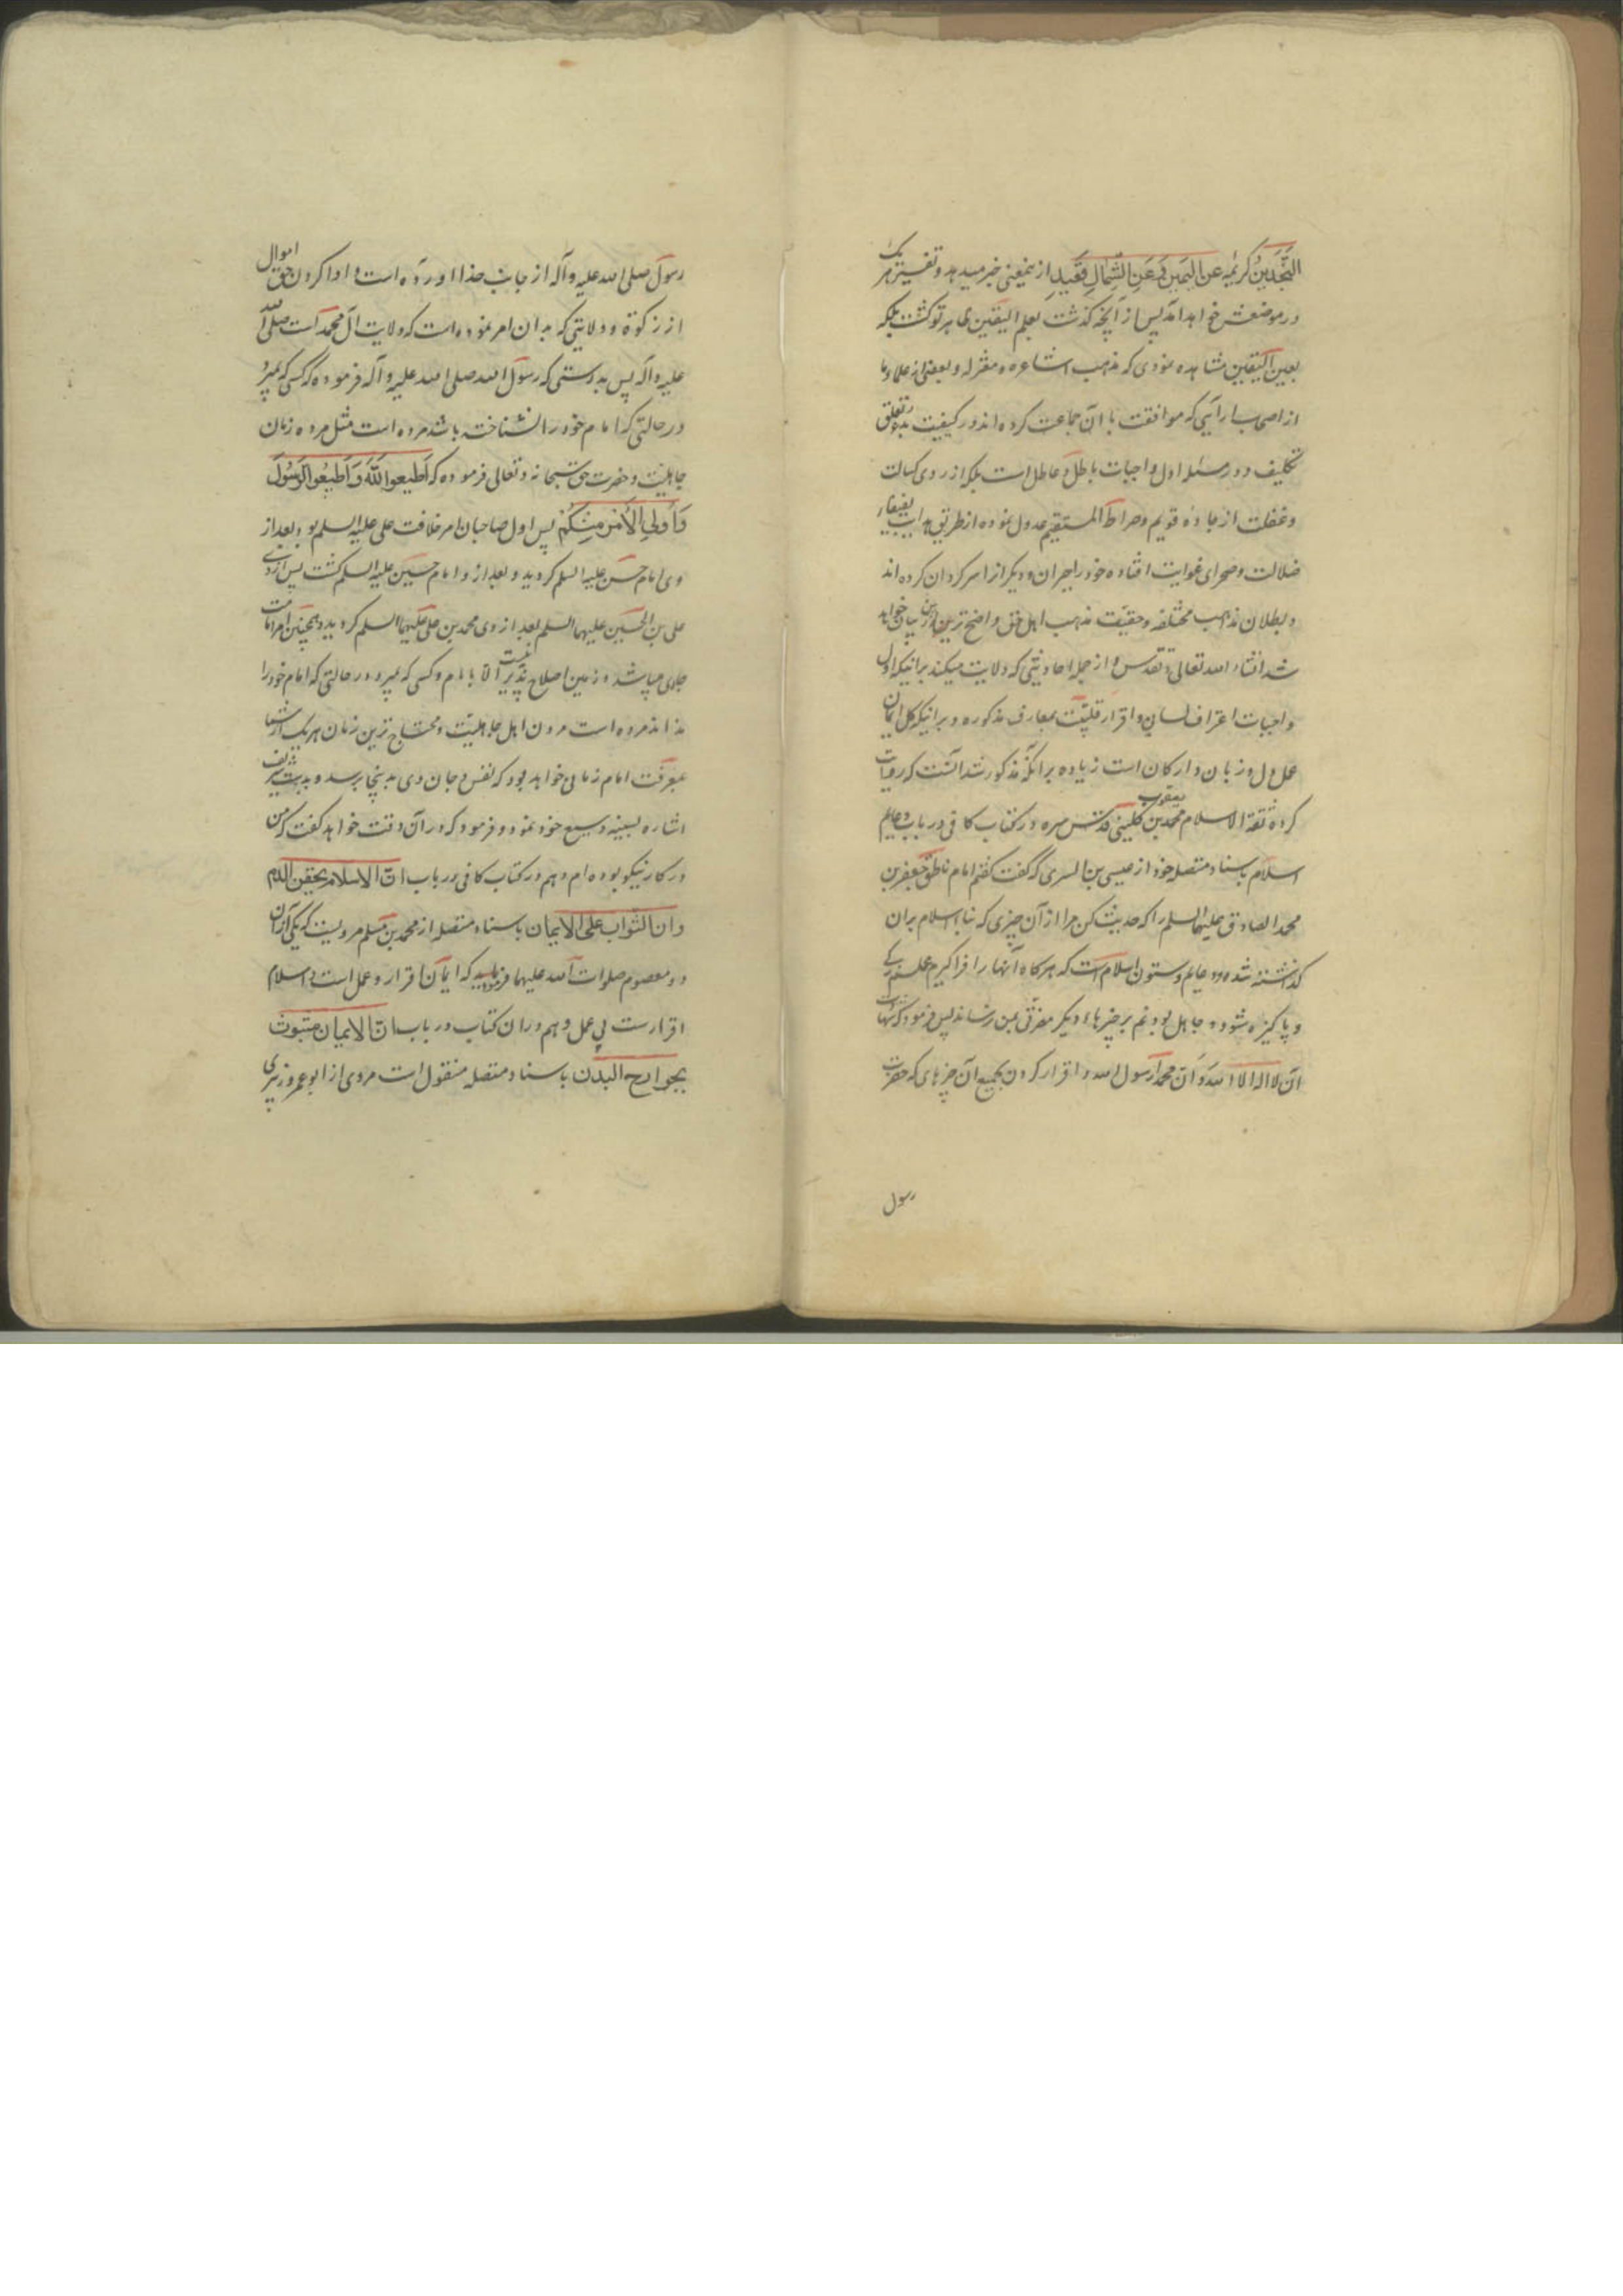 النجدین و کریمه عن الیمین و عن الشمال قعید از ینمعنی خبر میدهد و تفسیر هر یک
در موضعش خواهد آمد پس از آنچه گذشت بعلم الیقین ظاهر تو گشت بلکه
بعین الیقین مشاهده نمودی که مذهب اشاعره و معتزله و بعضی از علماء ما
از اصحاب را یی که موافقت با آن جماعت کرده‌اند در کیفیت بدو تعلق
تکلیف و در مسئله اول واجبات باطل و عاطل است بلکه از روی کسالت
و غفلت از جاده قویم و صراط المستقیم عدول نموده از طریق هدایت بفیفاء
ضلالت و صحرای غوایت افتاده خود را حیران و دیگر از اسر کردان کرده‌اند
و بطلان مذهب مختلفه و حقیقت مذهب اهل حق واضح ترین ازین بیان خواهد
شد انشاء الله تعالی و تقدس و از جمله احادیثی که دلالت میکند برانیکه اول
واجبات اعتراف لسان و اقرار قلبیت بمعارف مذکوره و برانیکه کل ایمان
عمل دل و زبان و ارکان است زیاده برانکه مذکور شد آنست که روایت
کرده ثقة الاسلام محمد بن یعقوب کلینی قدس سره در کتاب کافی در باب دعایم
اسلام باسناد متصله خود از عیسی بن السری که گفت گفتم امام ناطق جعفر بن
محمد الصادق علیهما السلم را که حدیث کن مرا از آن چیزی که بنا اسلام بران
گذاشته شده و دعایم و ستون اسلام است که هرگاه آنها را فرا گیرم عملم زکی
و پاکیزه شود و جاهل بودنم بر چیزهاء دیگر مضرتی بمن نرساند پس فرمود که شهادت
ان لا اله الا الله و ان محمدا رسول الله و اقرار کردن بجمیع آن چیزهای که حضرت
رسول
رسول صلی الله علیه و آله از جانب خدا اورده است و ادا کردن حق اموال
از زکوة و ولایتی که بدان امر نموده است که ولایت آل محمد است صلی الله
علیه و آله پس بدرستی که رسول الله صلی الله علیه و آله فرموده که کسی که بمیرد
در حالتی که امام خود را نشناخته باشد مرده است مثل مرده زمان
جاهلیت و حضرت حق سبحانه و تعالی فرموده که اَطیعوا الله وَ اَطیعُوا الرَسُولَ
وَ اُولِی الْاَمْرِ مِنْکُمْ پس اول صاحبان امر خلافت علی علیه السلم بود و بعد از
وی امام حسن علیه السلم گردید و بعد از و امام حسین علیه السلم گشت پس از وی
علی بن الحسین علیهما السلم بعد از وی محمد بن علی علیهما السلم گردید و همچنین امر امامت
جاری میباشد و زمین اصلاح پذیر نیست الا بامام و کسی که بمیرد در حالتی که امام خود را
نداند مرده است مردن اهل جاهلیت و محتاج ترین زمان هر یک از شما
بمعرفت امام زمانی خواهد بود که نفس و جان وی بدینجا برسد و بدست شریف
اشاره بسینه وسیع خود نمود و فرمود که در آن وقت خواهد گفت که من
در کار نیکو بوده‌ام و هم در کتاب کافی در باب ان الاسلام یحقن الدم
و ان الثواب علی الایمان باسناد متصله از محمد بن مسلم مرویست که یکی از آن
دو معصوم صلوات الله علیهما فرمایید که ایمان اقرار و عمل است و اسلام
اقرارست بی عمل و هم در ان کتاب در باب ان الایمان مبثوث
بجوارح البدن باسناد متصله منقول است مروی از ابو عمرو زبیری